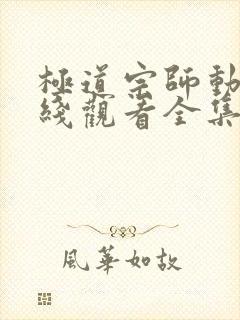 極道宗師動
綫觀看全集
風華如故